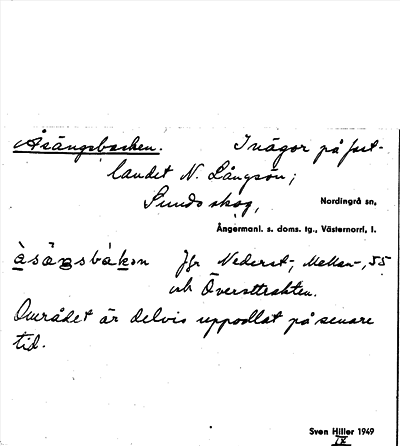 Åsängsbacken. Inägor på fast-
landet N. Långsön;
Sunds skog, Nordingrå sn,
Ångermanl. s. doms. tg., Västernorrl. l.
àsáŋsbákən Jfr Nederst-, Mellan-, 55
och Översttrakten.
Området är delvis uppodlat på senare
tid.
Sven Hiller 1949
IX